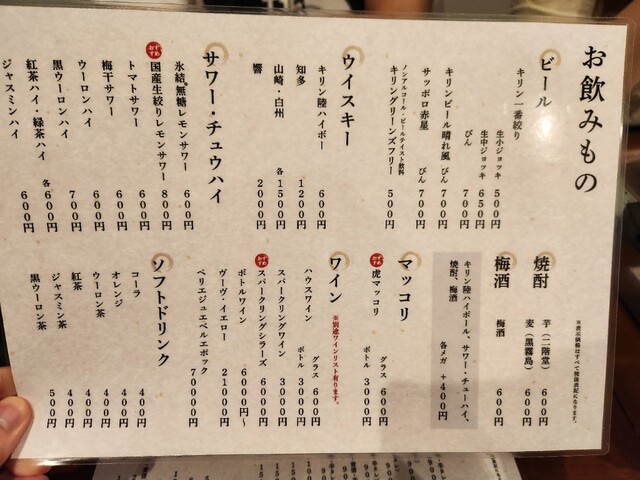 お飲みもの
ビール
キリン一番絞り
生小ジョッキ 500円
生中ジョッキ 650円
びん 700円
キリンビール晴れ風 びん 700円
サッポロ赤星 びん 700円
ノンアルコール・ビールテイスト飲料
キリングリーンズフリー 500円
ウイスキー
キリン陸ハイボー 600円
知多 1200円
山崎・白州 各1500円
響 2000円
サワー・チュウハイ
氷結®無糖レモンサワー 600円
おすすめ
国産生絞りレモンサワー 800円
トマトサワー 600円
梅干サワー 600円
ウーロンハイ 600円
黒ウーロンハイ 700円
紅茶ハイ・緑茶ハイ 各600円
ジャスミンハイ 600円
※表示価格はすべて税抜表記になります。
焼酎
芋(二階堂) 600円
麦(黒霧島) 600円
梅酒
梅酒 600円
キリン陸ハイボール、サワー・チューハイ、
焼酎、梅酒 各メガ +400円
マッコリ
おすすめ
虎マッコリ グラス 600円
ボトル 3000円
ワイン
※別途ワインリスト有ります。
ハウスワイン グラス 600円
ボトル 3000円
スパークリングワイン 3000円
おすすめ
スパークリングシラーズ 6000円
ボトルワイン 6000円〜
ヴーヴ・イエロー 21000円
ペリエジュエベルエポック 70000円
ソフトドリンク
コーラ 400円
オレンジ 400円
ウーロン茶 400円
紅茶 400円
ジャスミン茶 400円
黒ウーロン茶 500円